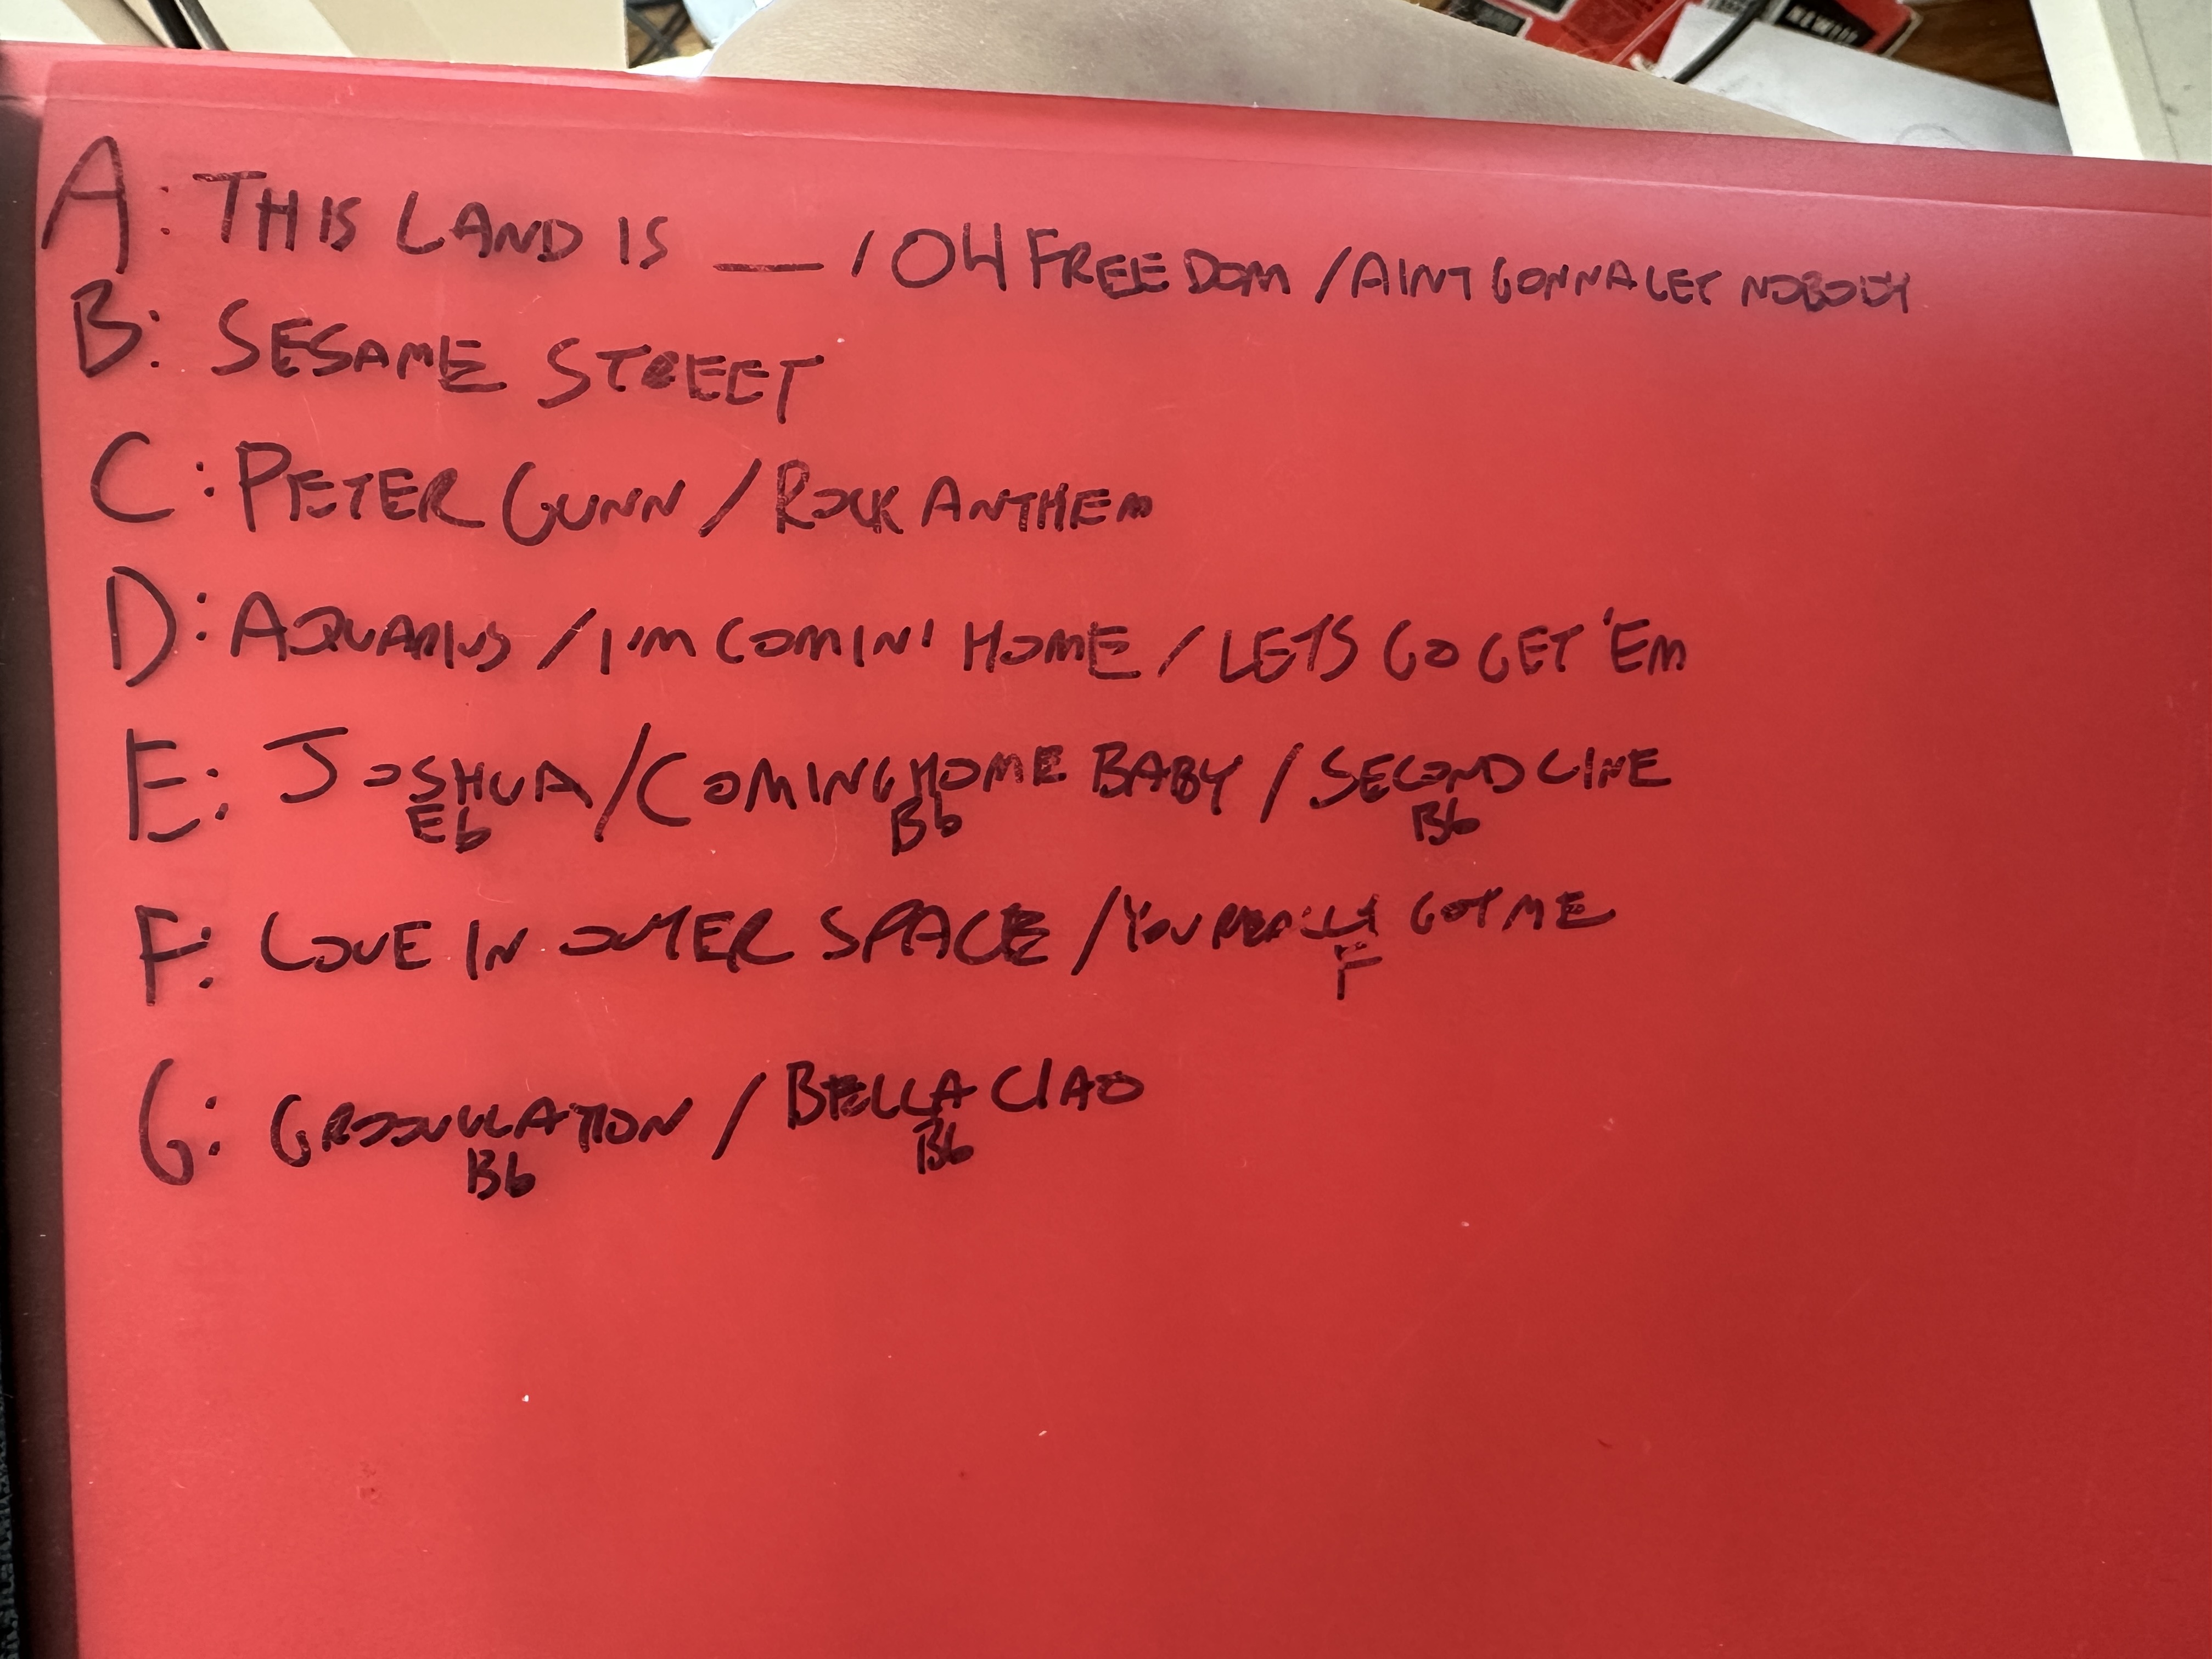 NEW!!!
A: THIS LAND IS __ / OH FREEDOM / AINT GONNA LET NOBODY
B: SESAME STREET
C: PETER GUNN / ROCK ANTHEM
D: AQUARIUS / I'M COMIN' HOME / LETS GO GET 'EM
E: JOSHUA / COMING HOME BABY / SECOND LINE
Eb Bb Bb
F: LOVE IN OUTER SPACE / YOU REALLY GOT ME
F
G: GROOVULATION / BELLA CIAO
Bb Bb